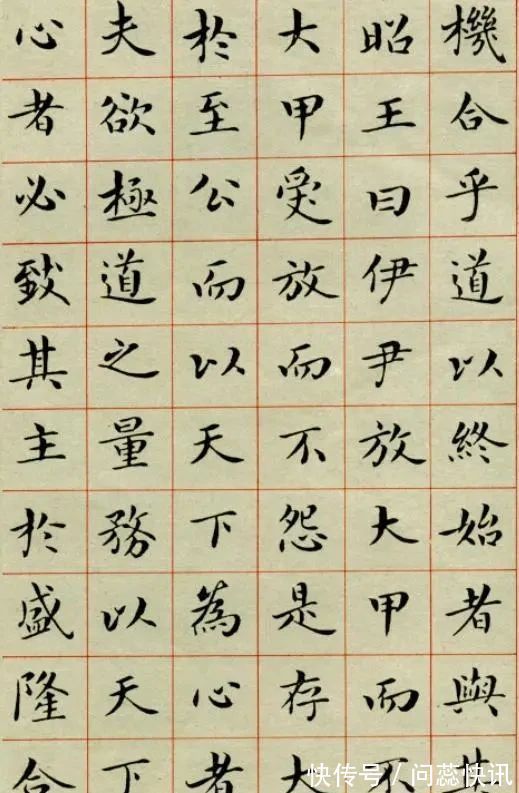 機合乎道以終始者與
昭王曰伊尹放大甲而不
大甲受放而不怨是存大
於至公而以天下為心者
夫欲極道之量務以天下
心者必致其主於盛隆合
快传号 / 问蕊快讯